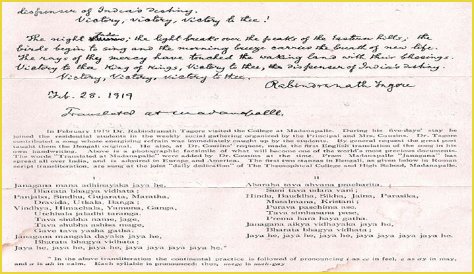 dispenser of India's destiny.
Victory, Victory, Victory to thee!
The night fades; the light breaks over the peaks of the Eastern hills; the
birds begin to sing and the morning breeze carries the breath of new life.
The rays of thy mercy have touched the waking land with their blessings.
Victory to the King of Kings, Victory to thee, the dispenser of India's destiny.
Victory, Victory, Victory to thee.
Rabindranath Tagore
Feb. 28. 1919
Translated at Madanapalle
In February 1919 Dr. Rabindranath Tagore visited the College at Madanapalle. During his five-days' stay he
joined the residential students in the weekly social gathering organised by the Principal and Mrs. Cousins. Dr. Tagore
contributed a song whose energising refrain was immediately caught up by the students. By general request the great poet
taught them the Bengali original. He also, at Dr. Cousins' request, made the first English translation of the song in his
own handwriting. This is a photographic facsimile of what will become one of the world's most precious documents.
The words "Translated at Madanapalle" were added by Dr. Cousins at the time. From Madanapalle "Janagana" has
spread all over India, and is admired in Europe and America. The first two stanzas in Bengali, as given below in Roman
script transliteration, are sung at the joint "daily dedication" of The Theosophical College and High School, Madanapalle.
I
Janagana mana adhinayaka jaya he,
Bharata bhagya vidhata;
Panjaba, Sindhu, Gujarata, Maratha,
Dravida, Utkala, Banga;
Vindhya, Himachala, Yamuna, Ganga,
Uchhala jaladhi taranga.
Tava shubha name jage,
Tava shubha ashisa mage,
Gave tava yasha gatha:
Janagana mangala dayaka jaya he,
Bharata bhagya vidhata;
Jaya he, jaya he, jaya he, jaya jaya jaya jaya he.
II
Aharaha tava ahvana pracharita,
Suni tava udara vani;
Hindu, Bauddha, Sikha, Jaina, Parasika,
Musalmana, Kristani;
Purava paschima ase,
Tava simhasana pase,
Prema hara haya gatha:
Janagana aikya vidhayaka jaya he,
Bharata bhagya vidhata;
Jaya he, jaya he, jaya he, jaya jaya jaya jaya he.
* In the above transliteration the continental practice is followed of pronouncing i as ee in feel, e as ay in may,
and a as ah in calm. Each syllable is pronounced: thus, mage is mah-gay.